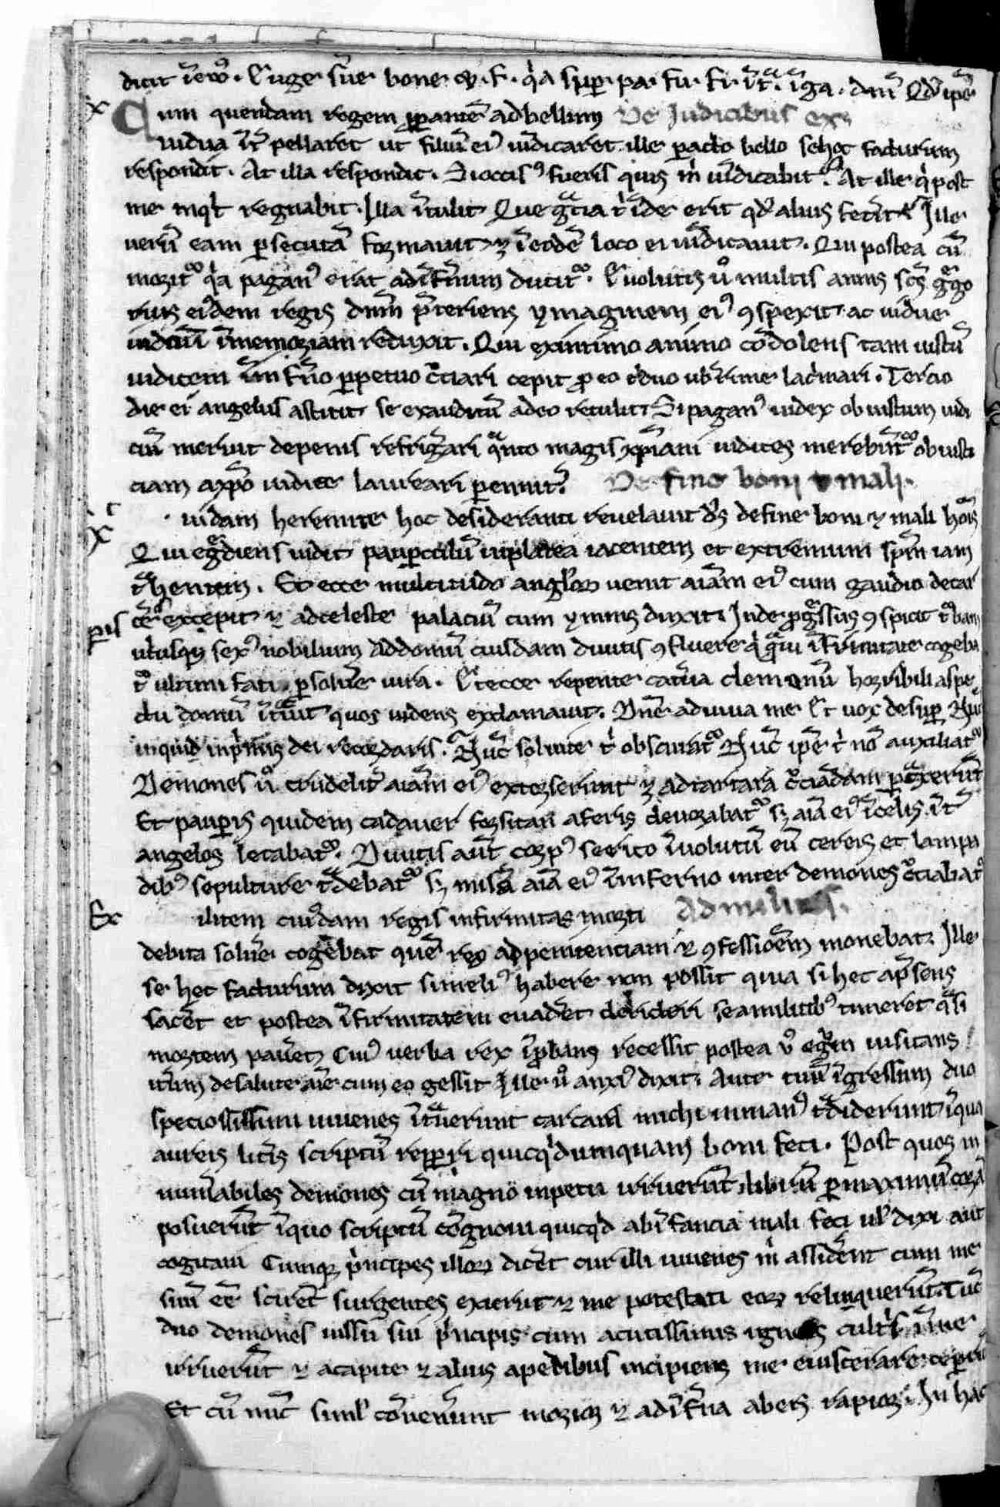 dicit Euge s̄ue bone ⁊ f. q̇a sup̱ pa. fu. fi. dn̄i
Cum quendam regem p̱parantē ad bellum De Iudicibus ex
uidua īt̄pellaret ut filiū ei᷒ uīdicaret ille p̱acto bello se hoc facturum
respondit. At illa respondit. Si occis᷒ fueris quis m̄ uīdicabit. At ille q̇ post
me inq̇t regnabit. Illa ītulit Que gr̄a t̄ īde erit qd̄ alius fecerit Ille
uerū eam p̱secutā firmauit ⁊ ī eodē loco ei uīdicauit. Qui postea cū
morit᷑ q̇a pagan᷒ erat ad īfernum ducit᷑. Euolutis u̇ multis annis sc̄s g̊go
rius eiusdem regis domū p̄teriens ymaginem ei᷒ ꝯspexit ac uidue
iudiciū ī memoriam reduxit. Qui ex intimo animo cōdolens tam iustū
iudicem ī inferno p̱petuo c̊ciari cepit ꝓ eo triduo ub̄rime lac̄mari. Tercio
die ei angelus astitit se exauditū a deo retulit. Si pagan᷒ iudex ob iustum iudi
ciū meruit de penis refriḡari q̄nto magis xp̄iani iudices merebūt᷑ ob iusti
ciam a xp̄o iudice laureari p̱enniter De fine boni ⁊ mali.
uidam heremite hoc desideranti reuelauit ds̄ de fine boni ⁊ mali hōis
Qui eg̊diens uidit paup̱culū in platea iacentem et extremum sp̄m iam
t̄hentem. Et ecce multitudo angloꝝ uenit aīam ei᷒ cum gaudio decan
tās excepit ⁊ ad celeste palaciū cum ymnis duxit. Inde ꝓg̊ssus ꝯspicit t᷑bam
utriusqꝫ sex᷒ nobilium ad domū cuiusdam diuitis ꝯfluere q̇ gͣui īfirmitate cogeba
t᷑ ultimi fati p̱soluere iura. Et ecce repente cat̄ua demonū horribili aspe
ctu domū ītͣuit quos uidens exclamauit. Dn̄e adiuua me Et uox desup̱ Nūc
inquid inp̄mis dei recordaris. Nūc sol uite t̄ obscurat᷑ Nūc ip̄e t̄ nō auxiliat᷑
Demones u̇ crudelit̄ aīam ei᷒ extorserunt ⁊ ad tartara c̊ciādam p̱tͣxerūt
Et paup̱is quidem cadauer forsitan a feris deuorabat᷑ sꝫ aīa ei᷒ ī celis īt̄
angelos letabat᷑. Diuitis aūt corp᷒ serico īuolutū cū cereis et lampa
dib᷒ sepulture tͣdebat᷑ sꝫ mis̄a aīa ei᷒ in inferno inter demones c̊ciabat᷑
ilitem cuiusdam regis infirmitas morti Ad milites.
debita soluere cogebat quē rex ad penitenciam ⁊ ꝯfessionem monebat. Ille
se hec facturum dixit si meli᷒ habere non possit quia si hec ap̄sens
facēt et postea īfirmitatem euadēt derideri se a militib᷒ timeret q̄si
mortem pauēt Cui᷒ uerba rex īprobans recessit postea u̇ egrum uisitans
iterum de salute aīe cum eo gessit Ille u̇ anxi᷒ dixit. Ante tuū īgressum duo
speciosissimi iuuenes ītͣuerunt cartam michi in man᷒ tͣdiderunt ī qua
aureis lit̄is scriptū rep̱peri quicq̇d umquam boni feci. Post quos in
num̄abiles demones cū magno inpetu irruerūt librū p̱maximū corā
posuerūt ī quo scriptū cōgnoui quicq̇d ab īfancia mali feci ul̄ dixi aut
cogitaui Cumqꝫ p̄ncipes illoꝝ dicēt cur illi iuuenes m̄ assidēnt cum me
suū eē̄ scirēt surgentes exierūt ⁊ me potestati eoꝝ relinquerūt. Tūc
duo demones iussu sui p̄ncipis cum acutissimis igneis cult̄s ī me
irruerūt ⁊ a capite ⁊ alius a pedibus incipiens me euiscerare cep̱ūt
Et cū nūc simul cōuenerunt morior ⁊ ad īferna ab eis rapior. In hac